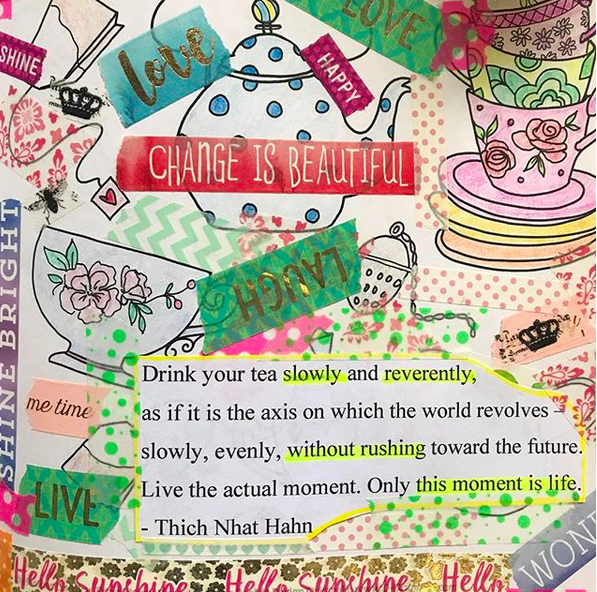 LOVE
love
SHINE
HAPPY
CHANGE IS BEAUTIFUL
LAUGH
SHINE BRIGHT
me time
LIVE
Drink your tea slowly and reverently,
as if it is the axis on which the world revolves –
slowly, evenly, without rushing toward the future.
Live the actual moment. Only this moment is life.
- Thich Nhat Hahn
Hello Sunshine Hello Sunshine Hello